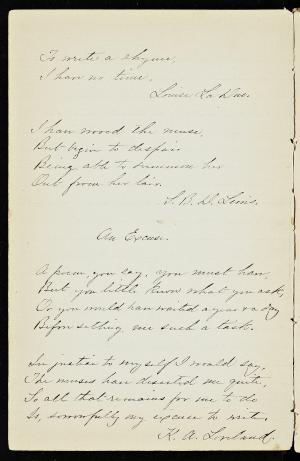 To write a rhyme,
I have no time.
Louise La Due.
I have wooed the muse,
But begin to despair
Being able to summon her
Out from her lair.
S. B. D.
An Excuse.
A poem, you say, you must have,
But you little know what you ask,
Or you would have waited a year & a day
Before setting me such a task.
In justice to myself I would say,
The muses have deserted me quite,
So all that remains for me to do
Is, sorrowfully my excuse to write.
K. A. Loveland.